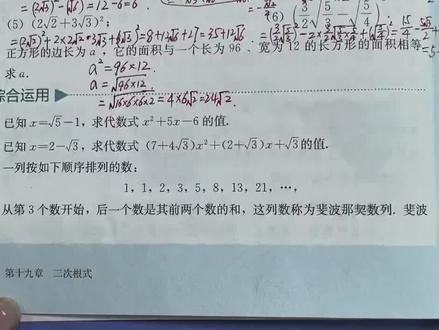 (5) (2√2+3√3)²;
=(2√2)²+2×2√2×3√3+(3√3)²=8+12√6+27=35+12√6
正方形的边长为a，它的面积与一个长为96、宽为12的长方形的面积相等.
求a.
a²=96×12.
a=√96×12.
=√16×6×6×2=4×6√2=24√2.
综合运用
已知x=√5-1，求代数式x²+5x-6的值.
已知x=2-√3，求代数式(7+4√3)x²+(2+√3)x+√3的值.
一列按如下顺序排列的数：
1，1，2，3，5，8，13，21，…，
从第3个数开始，后一个数是其前两个数的和，这列数称为斐波那契数列. 斐波
第十九章 二次根式